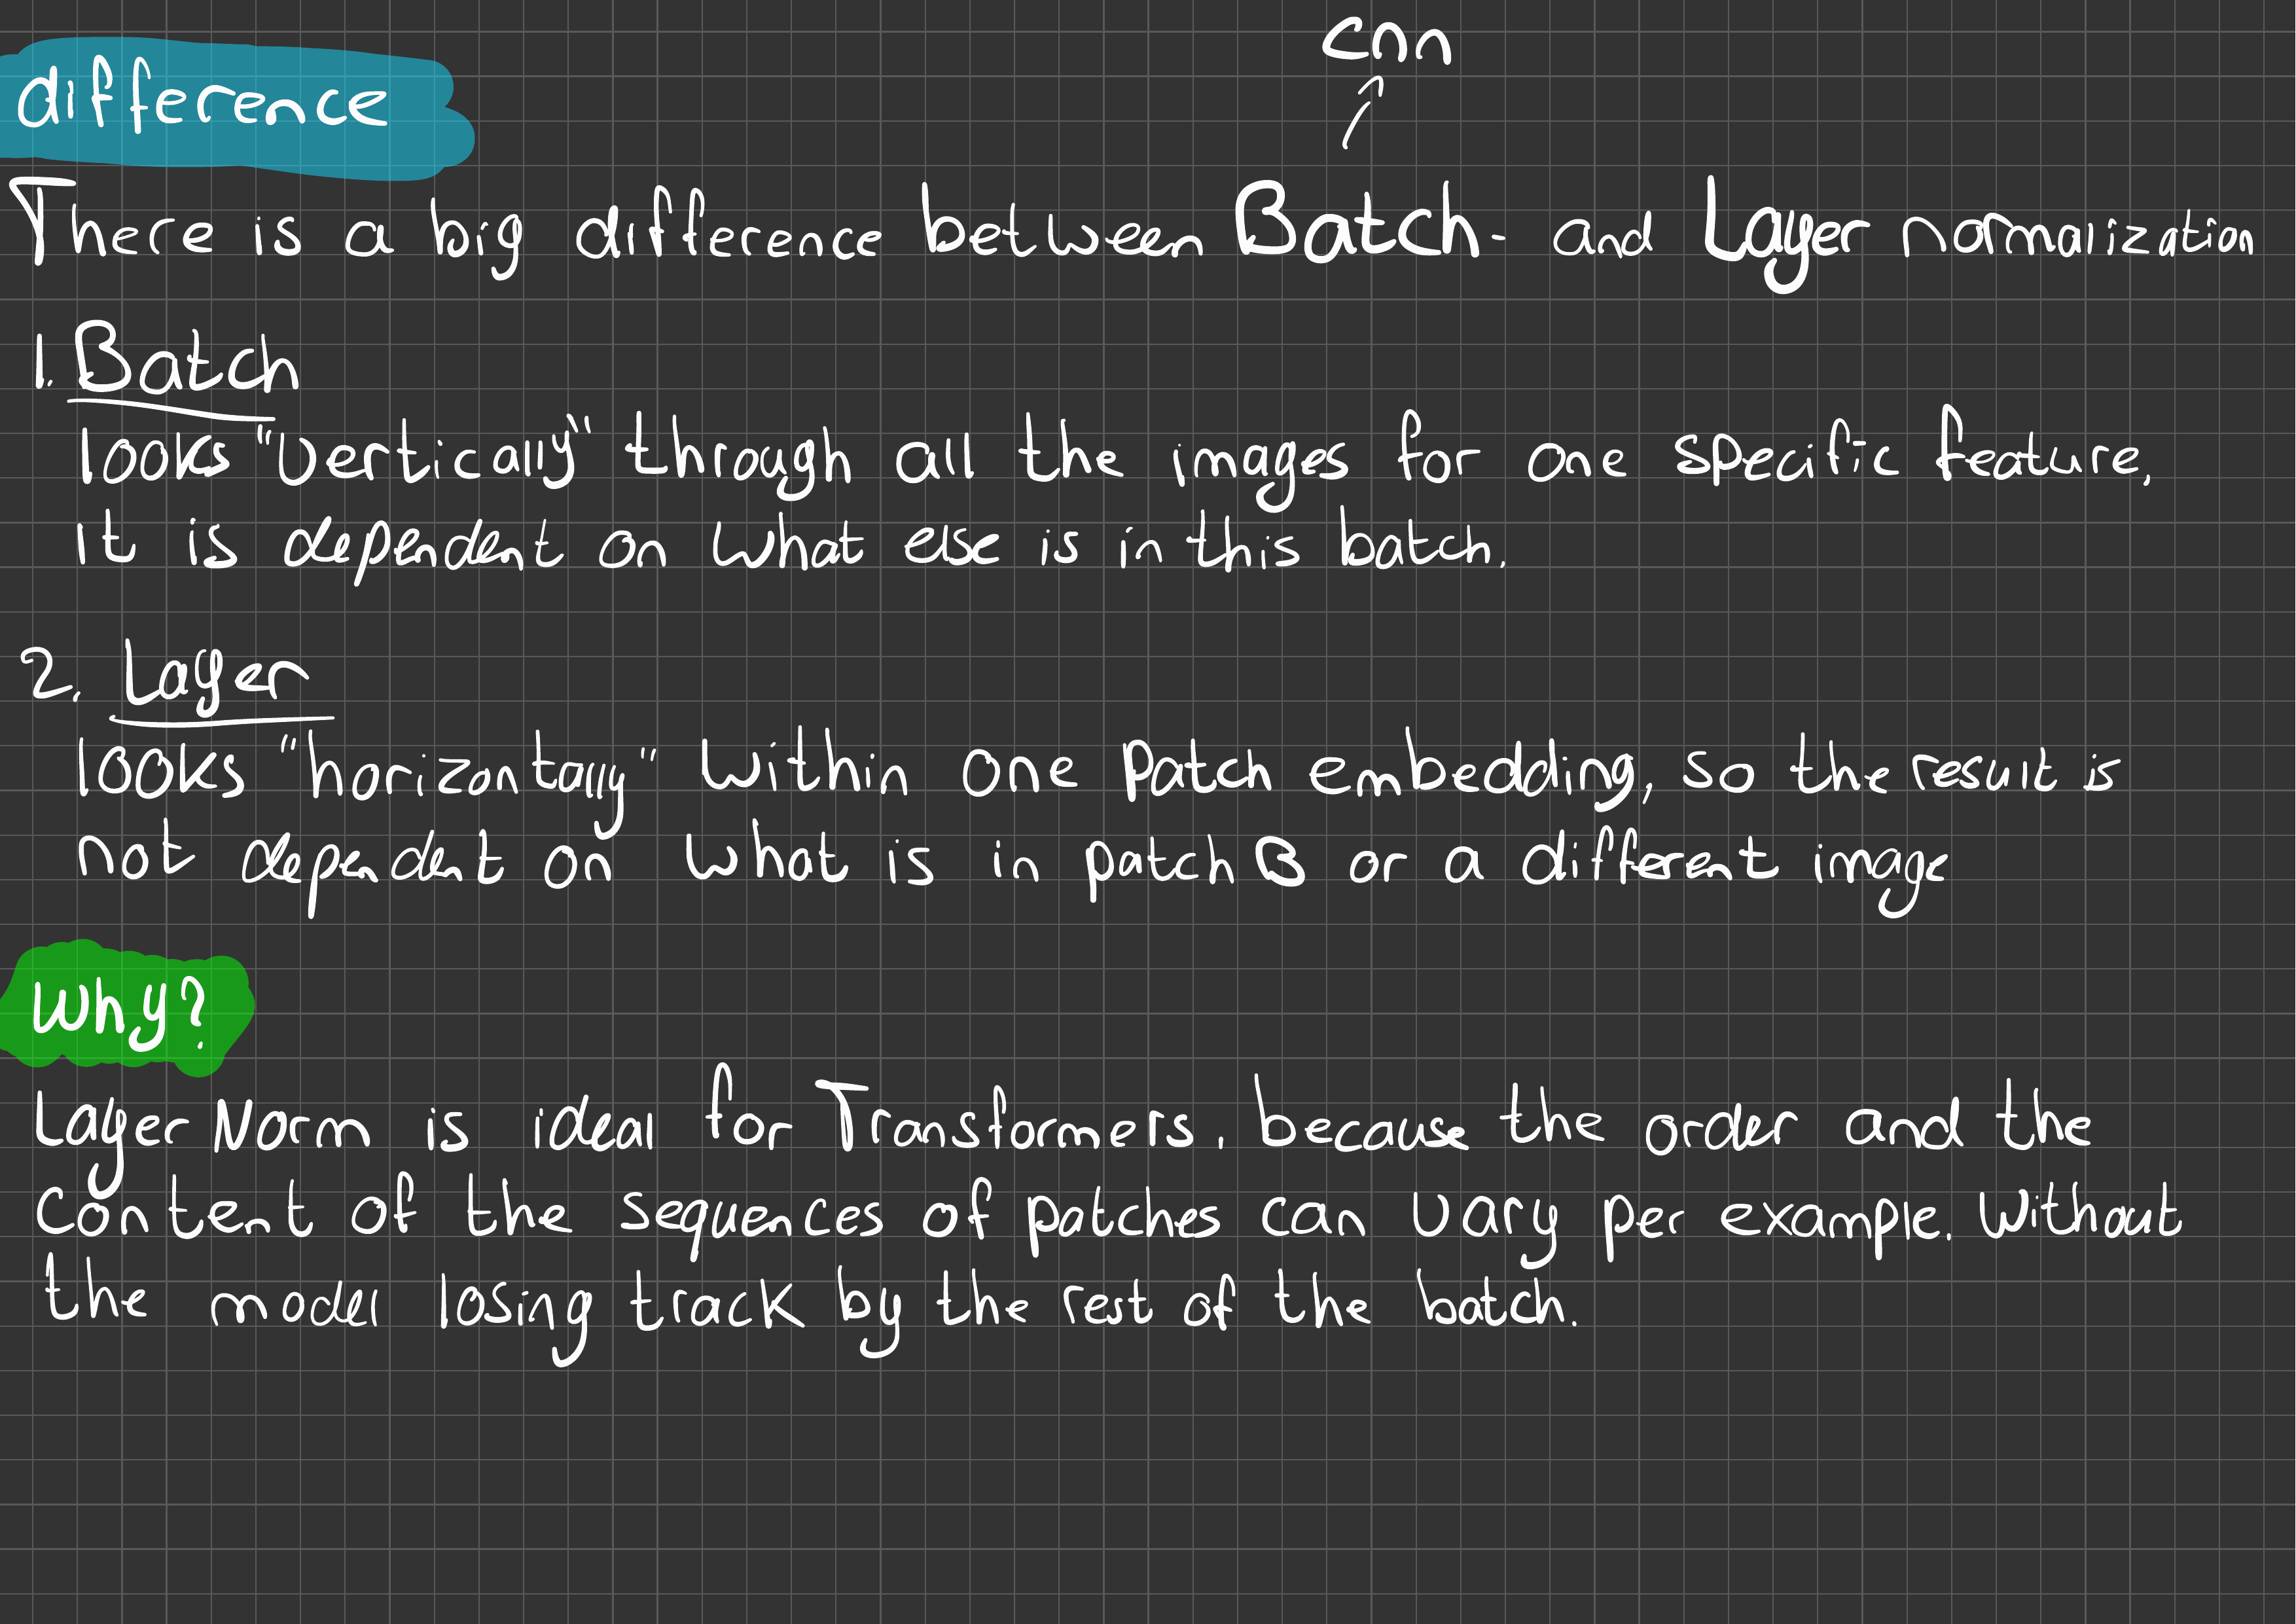 cnn
difference
There is a big difference between Batch- and Layer normalization
1. Batch
looks "vertically" through all the images for one specific feature,
it is dependent on what else is in this batch.
2. Layer
looks "horizontally" within one patch embedding, so the result is
not dependent on what is in patch B or a different image
Why?
Layer Norm is ideal for Transformers, because the order and the
content of the sequences of patches can vary per example. Without
the model losing track by the rest of the batch.